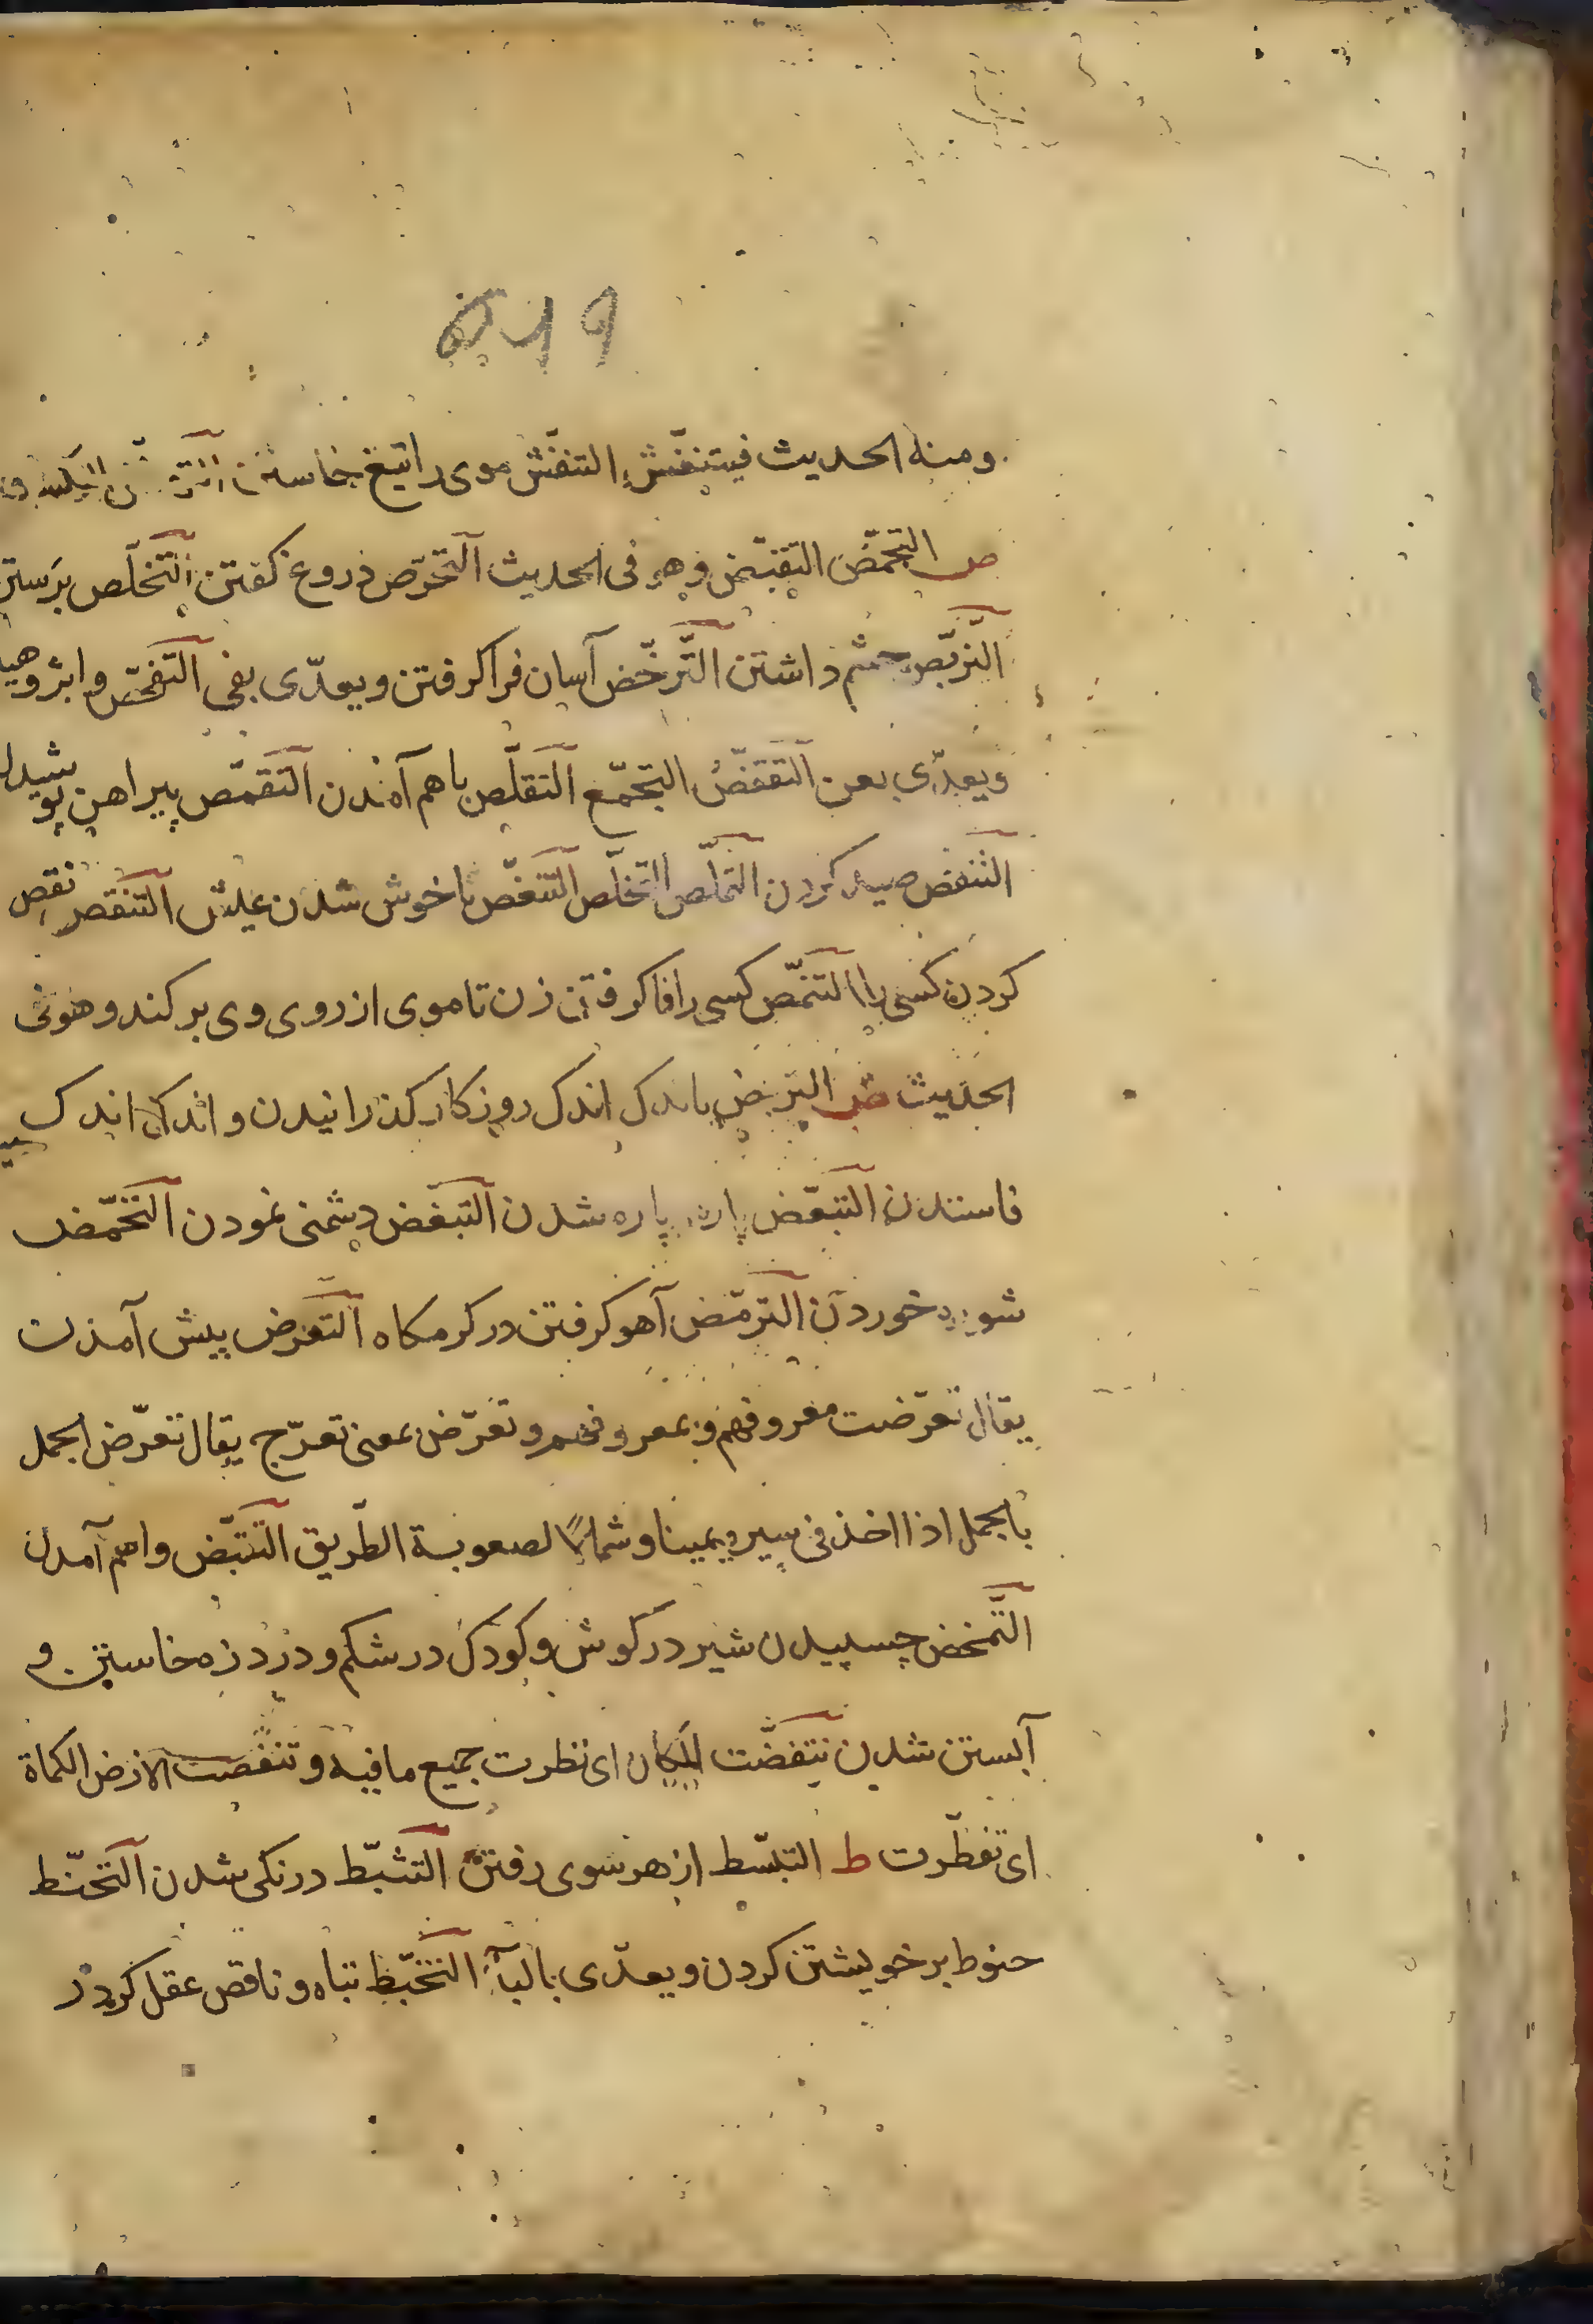 ۵۶۹
ومنه الحديث فيتنفّش التنفّش موى راتيغ خاستن
ص التحمّص التقبّض وهو فى الحديث التّخرّص دروغ كفتن التّخلّص برستن
التّربّص چشم داشتن التّرخّص آسان فراكرفتن ويعدّى بفى التّفحّص وا پژوهيدن
ويعدّى بعن التّقفّص التجمّع التّقلّص باهم آمدن التّقمّص پيراهن پوشيدن
التّنقّص صيد كردن التملّص التخلّص التّنغّص ناخوش شدن عيش التّنقّص نقص
كردن كسى را التنمّص كسى را فاكرفتن زن تاموى ازروى وى بركند وهو فى
الحديث ض التبرّض باندك اندك روزكار كذرانيدن واندك اندك
فاستدن التّبعّض پاره پاره شدن التّبغّض دشمنى نمودن التّحمّض
شوره خوردن التّرمّض آهو كرفتن در كرمكاه التّعرّض پيش آمدن
يقال تعرّضت معروفهم و بمعروفهم وتعرّض بمعنى تعرّج يقال تعرّض الجمل
بالجبل اذا اخذ فى سيره يمينا وشمالًا لصعوبة الطّريق التّقبّض واهم آمدن
التّمخّض جسبيدن شير در كوش وكودك در شكم ودرد زه خاستن و
آبستن شدن تنفّضت المكان اى نظرت جميع ما فيه وتنقّضت الارض الكماة
اى تفطّرت ط التبسّط از هر سوى رفتن التّثبّط درنكى شدن التّحنّط
حنوط برخويشتن كردن ويعدّى بالبآء التّخبّط تباه وناقص عقل كردن